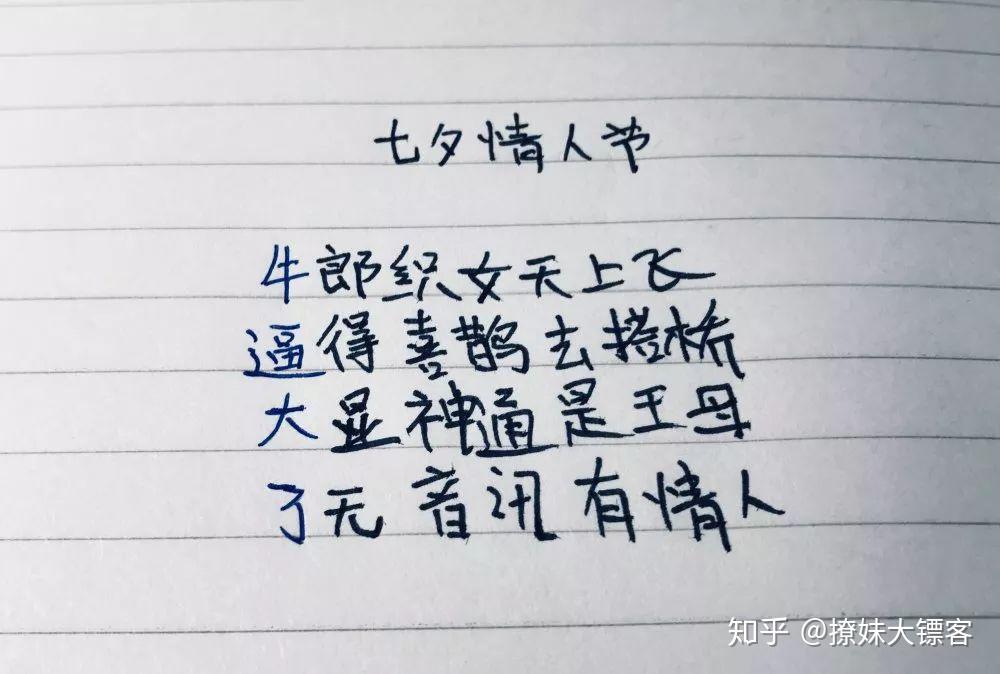 七夕情人节
牛郎织女天上飞
逼得喜鹊去搭桥
大显神通是王母
了无音讯有情人
知乎 @撩妹大镖客